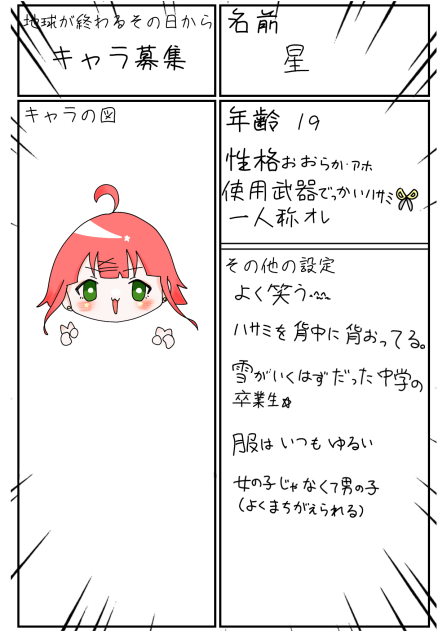 地球が終わるその日から
キャラ募集
名前
星
キャラの図
年齢 19
性格おおらか・アホ
使用武器でっかいハサミ
一人称オレ
その他の設定
よく笑う〜
ハサミを背中に背おってる。
雪がいくはずだった中学の
卒業生
服はいつもゆるい
女の子じゃなくて男の子
(よくまちがえられる)